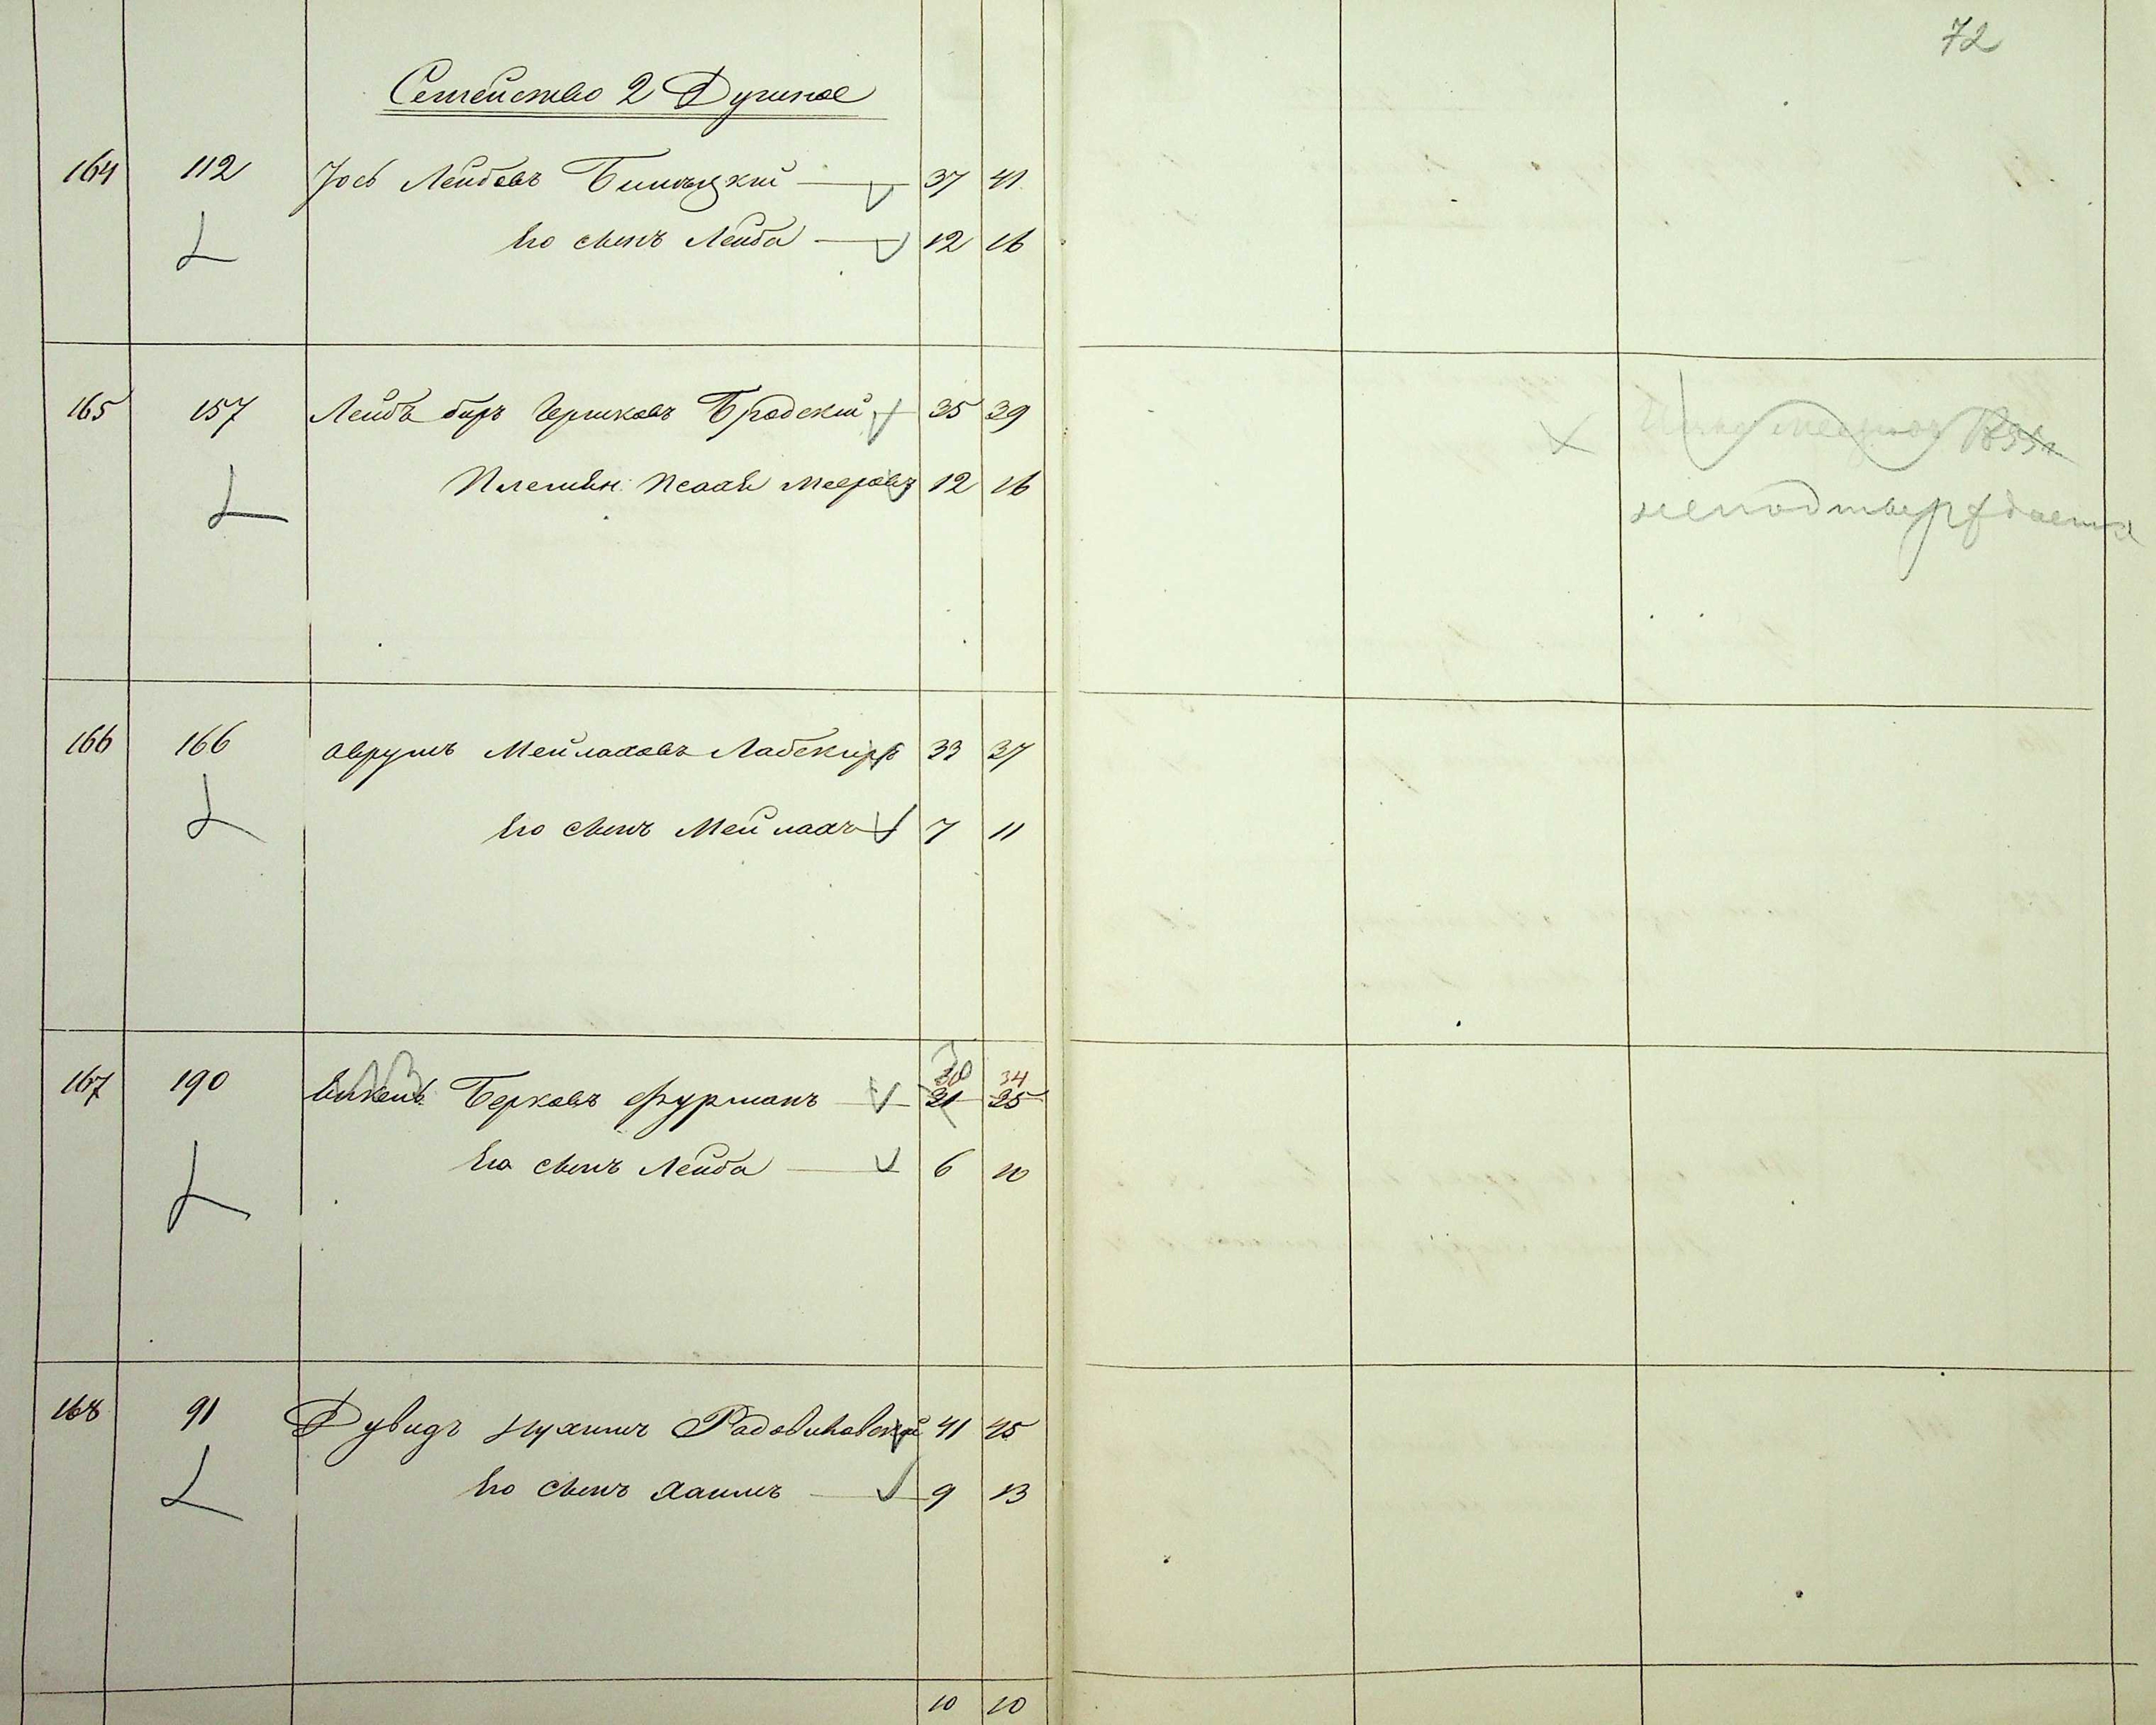 72
Семейство 2 Душное
164 112 Іось Лейбовъ Билоцкій 37 41
Его сынъ Лейба 12 16
165 157 Лейбъ беръ Гершковъ Бродскій 35 39
Племян: Исаакъ Мееровъ 12 16
неподтверждается
166 166 Аврумъ Мейлаховъ 33 37
Его сынъ Мейлахъ 7 11
30 34
167 190 Берковъ Фурманъ 21 25
Его сынъ Лейба 6 10
168 91 Дувидъ Нухимъ Радовиховскій 41 45
Его сынъ Хаимъ 9 13
10 10